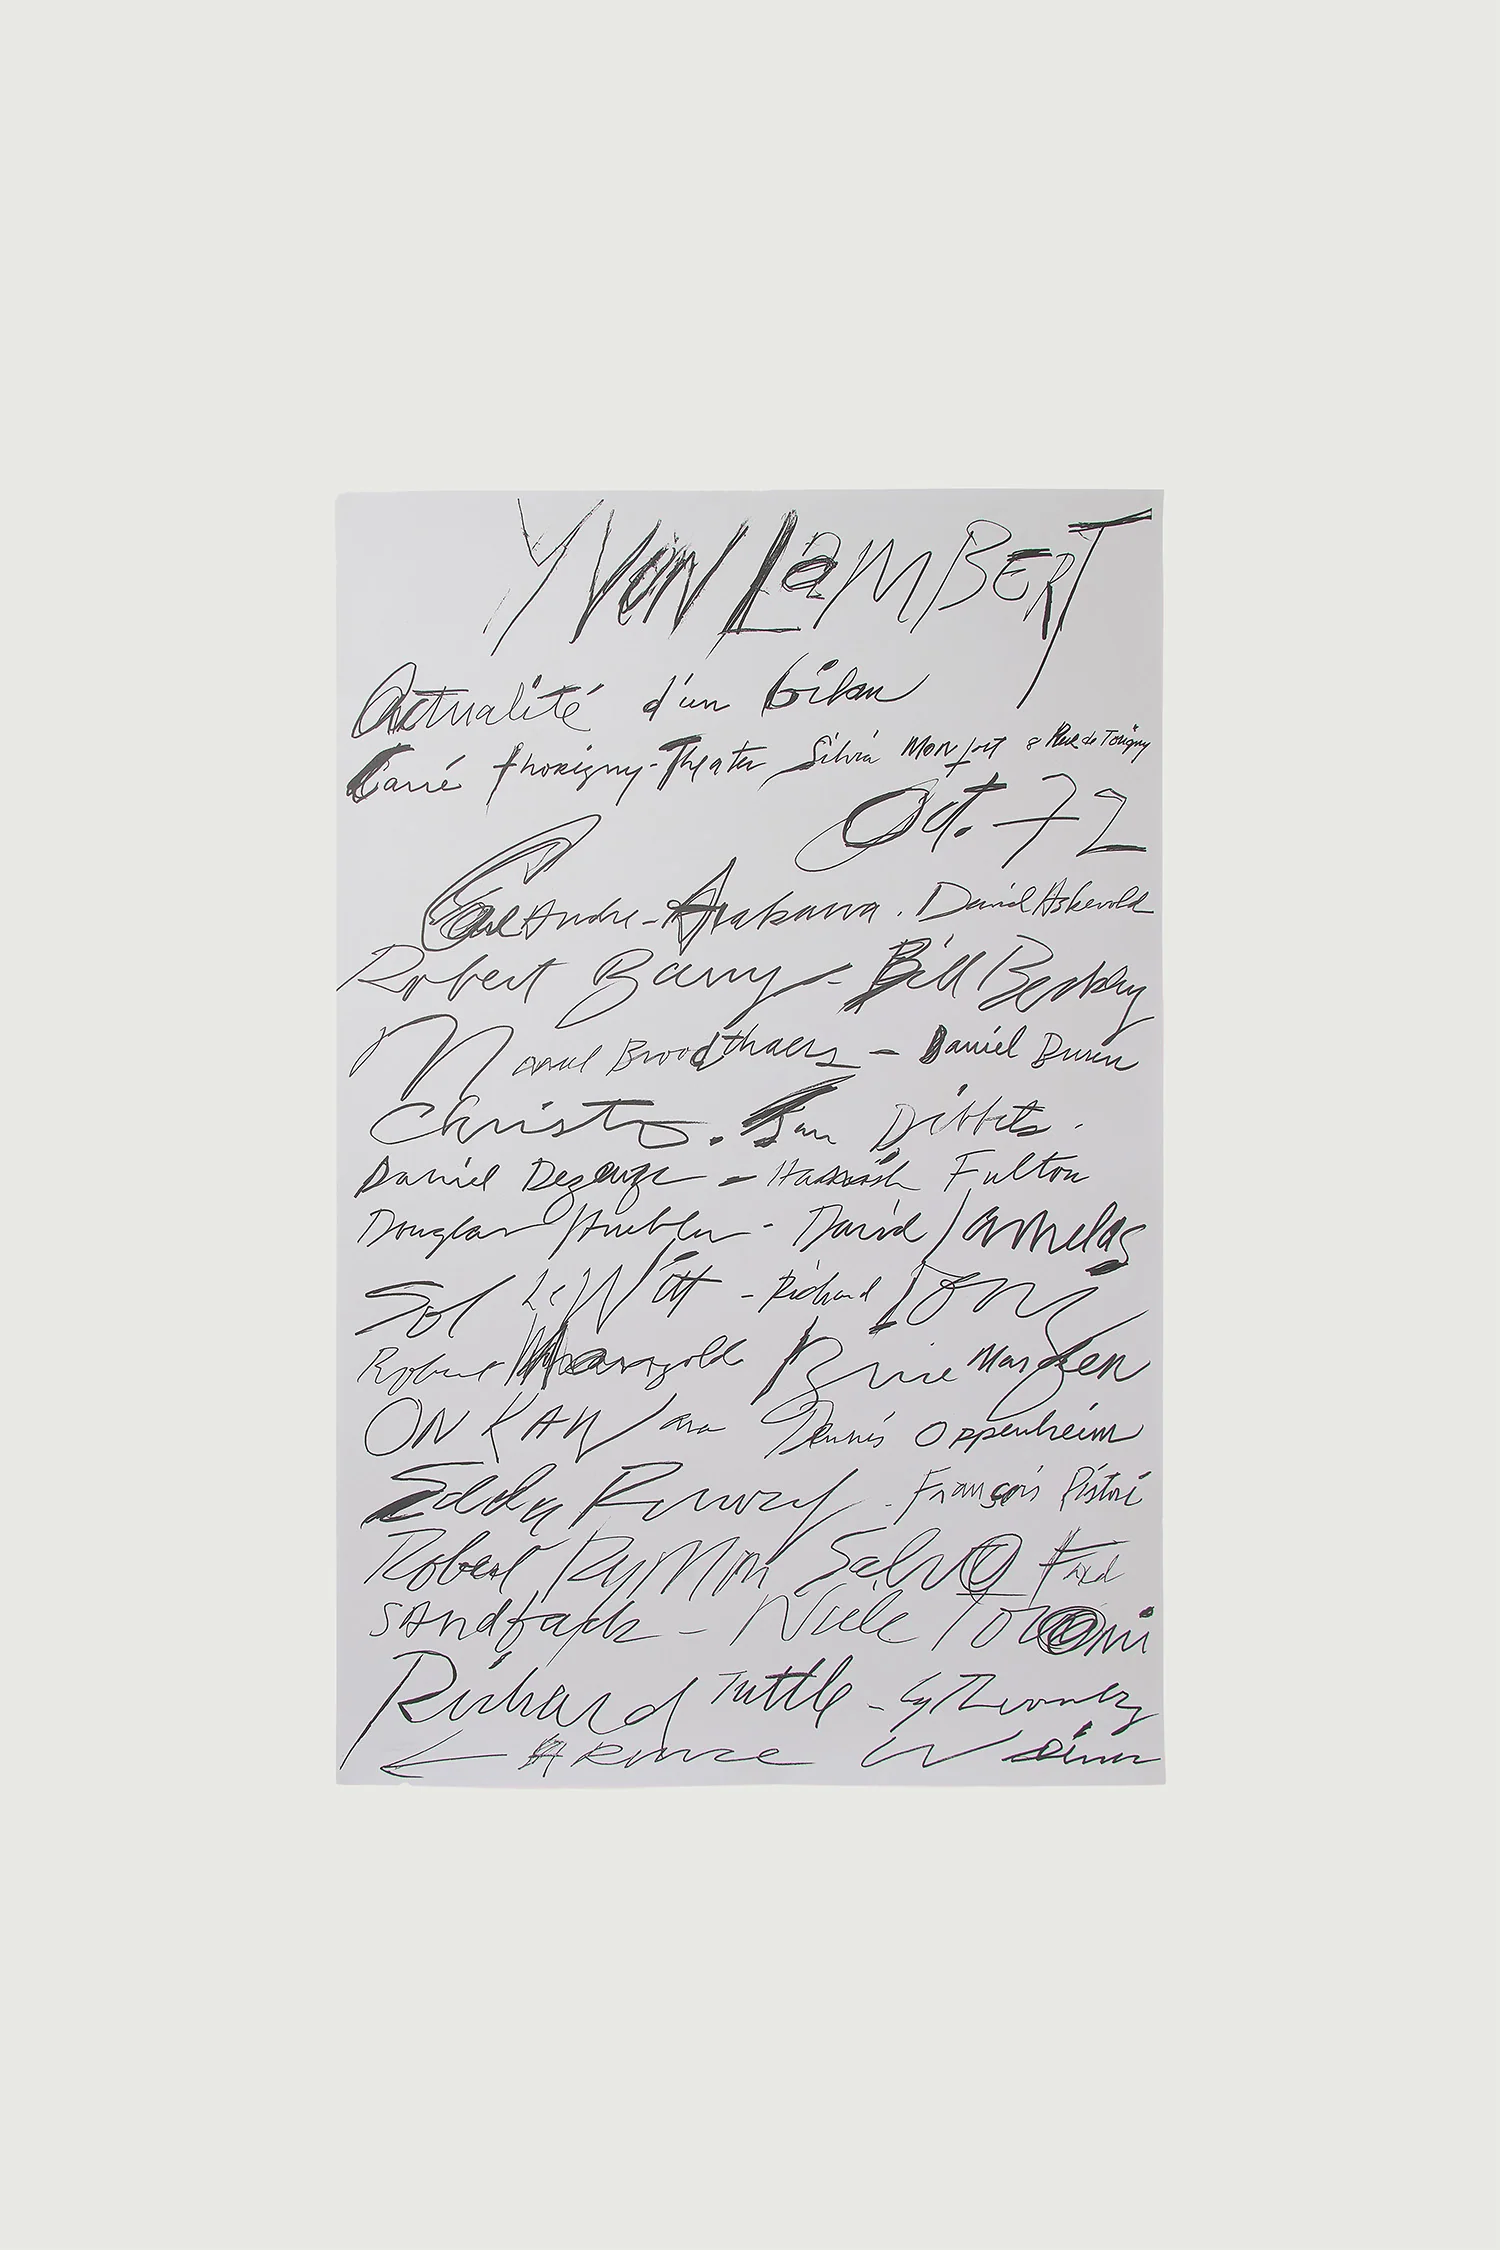 YVON LAMBERT
Actualité d'un bilan
Carré Thorigny - Theater Silvia Monfort 8 Rue de Torigny
Oct. 72
Carl Andre - Arakawa . David Askevold
Robert Barry - Bill Beckley
Marcel Broodthaers - Daniel Buren
Christo . Jan Dibbets .
Daniel Dezeuze - Hamish Fulton
Douglas Huebler - David Lamelas
Sol LeWitt - Richard Long
Robert Mangold Brice Marden
ON KAWara Dennis Oppenheim
Edda Renouf . François Ristori
Robert Ryman Salvo Fred
SAndback - Niele Toroni
Richard Tuttle - Cy Twombly
← Lawrence Weiner